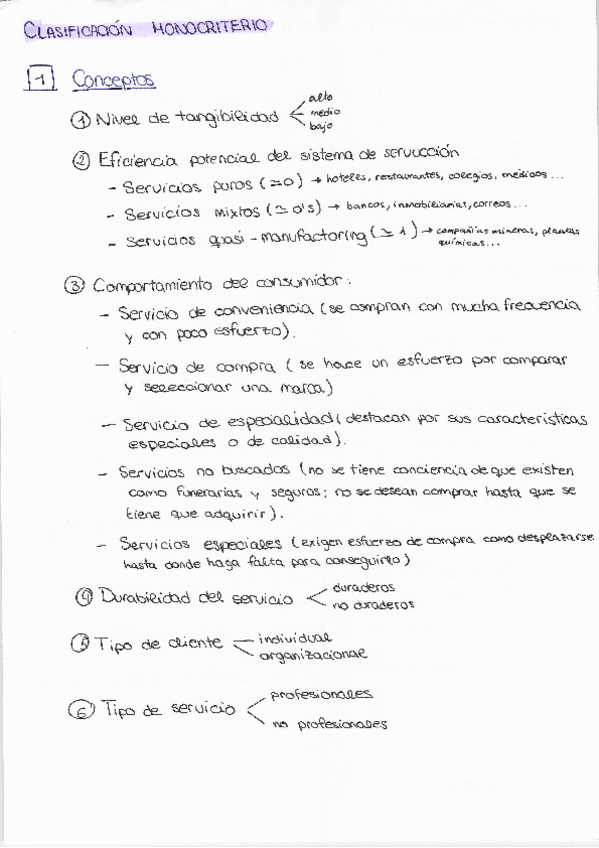 CLASIFICACIÓN MONOCRITERIO
1 Conceptos
① Nivel de tangibilidad
alto
medio
bajo
② Eficiencia potencial del sistema de servucción
- Servicios puros (≃0) → hoteles, restaurantes, colegios, médicos...
- Servicios mixtos (≃0's) → bancos, inmobiliarias, correos...
- Servicios quasi-manufactoring (≃1) → compañías mineras, plantas
químicas...
③ Comportamiento del consumidor:
- Servicio de conveniencia (se compran con mucha frecuencia
y con poco esfuerzo).
- Servicio de compra (se hace un esfuerzo por comparar
y seleccionar una marca)
- Servicio de especialidad (destacan por sus características
especiales o de calidad).
- Servicios no buscados (no se tiene conciencia de que existen
como funerarias y seguros; no se desean comprar hasta que se
tiene que adquirir).
- Servicios especiales (exigen esfuerzo de compra como desplazarse
hasta donde haga falta para conseguirlo)
④ Durabilidad del servicio
duraderos
no duraderos
⑤ Tipo de cliente
individual
organizacional
⑥ Tipo de servicio
profesionales
no profesionales